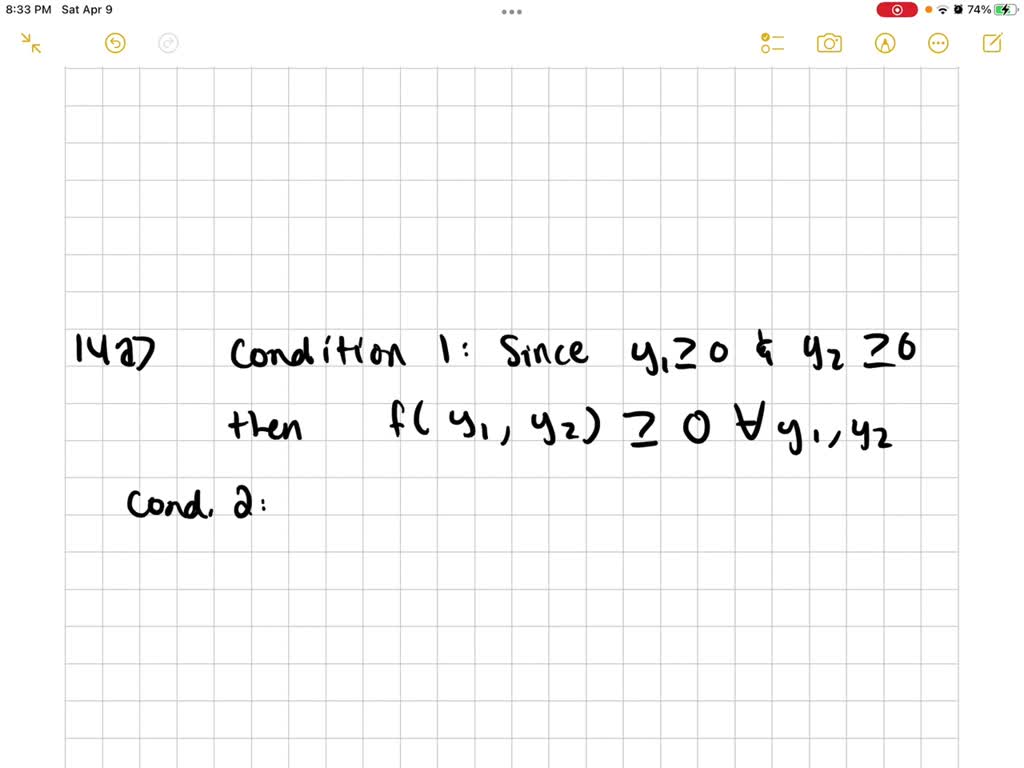 8:33 PM Sat Apr 9
74%
14a) Condition 1: Since y₁ ≥ 0 & y₂ ≥ 0
then f( y₁, y₂) ≥ 0 ∀ y₁, y₂
Cond. 2: